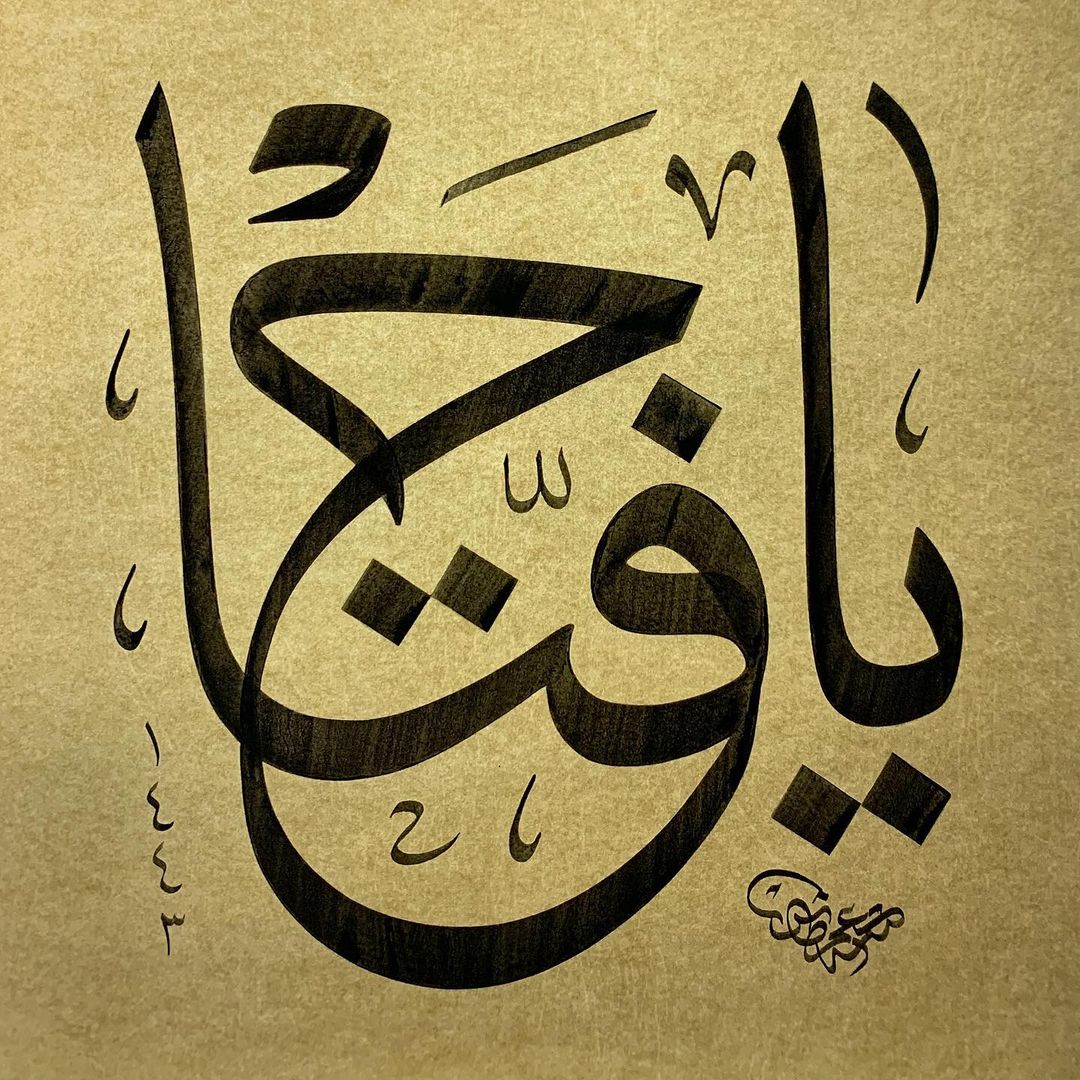 يا فتّاح
١٤٤٣